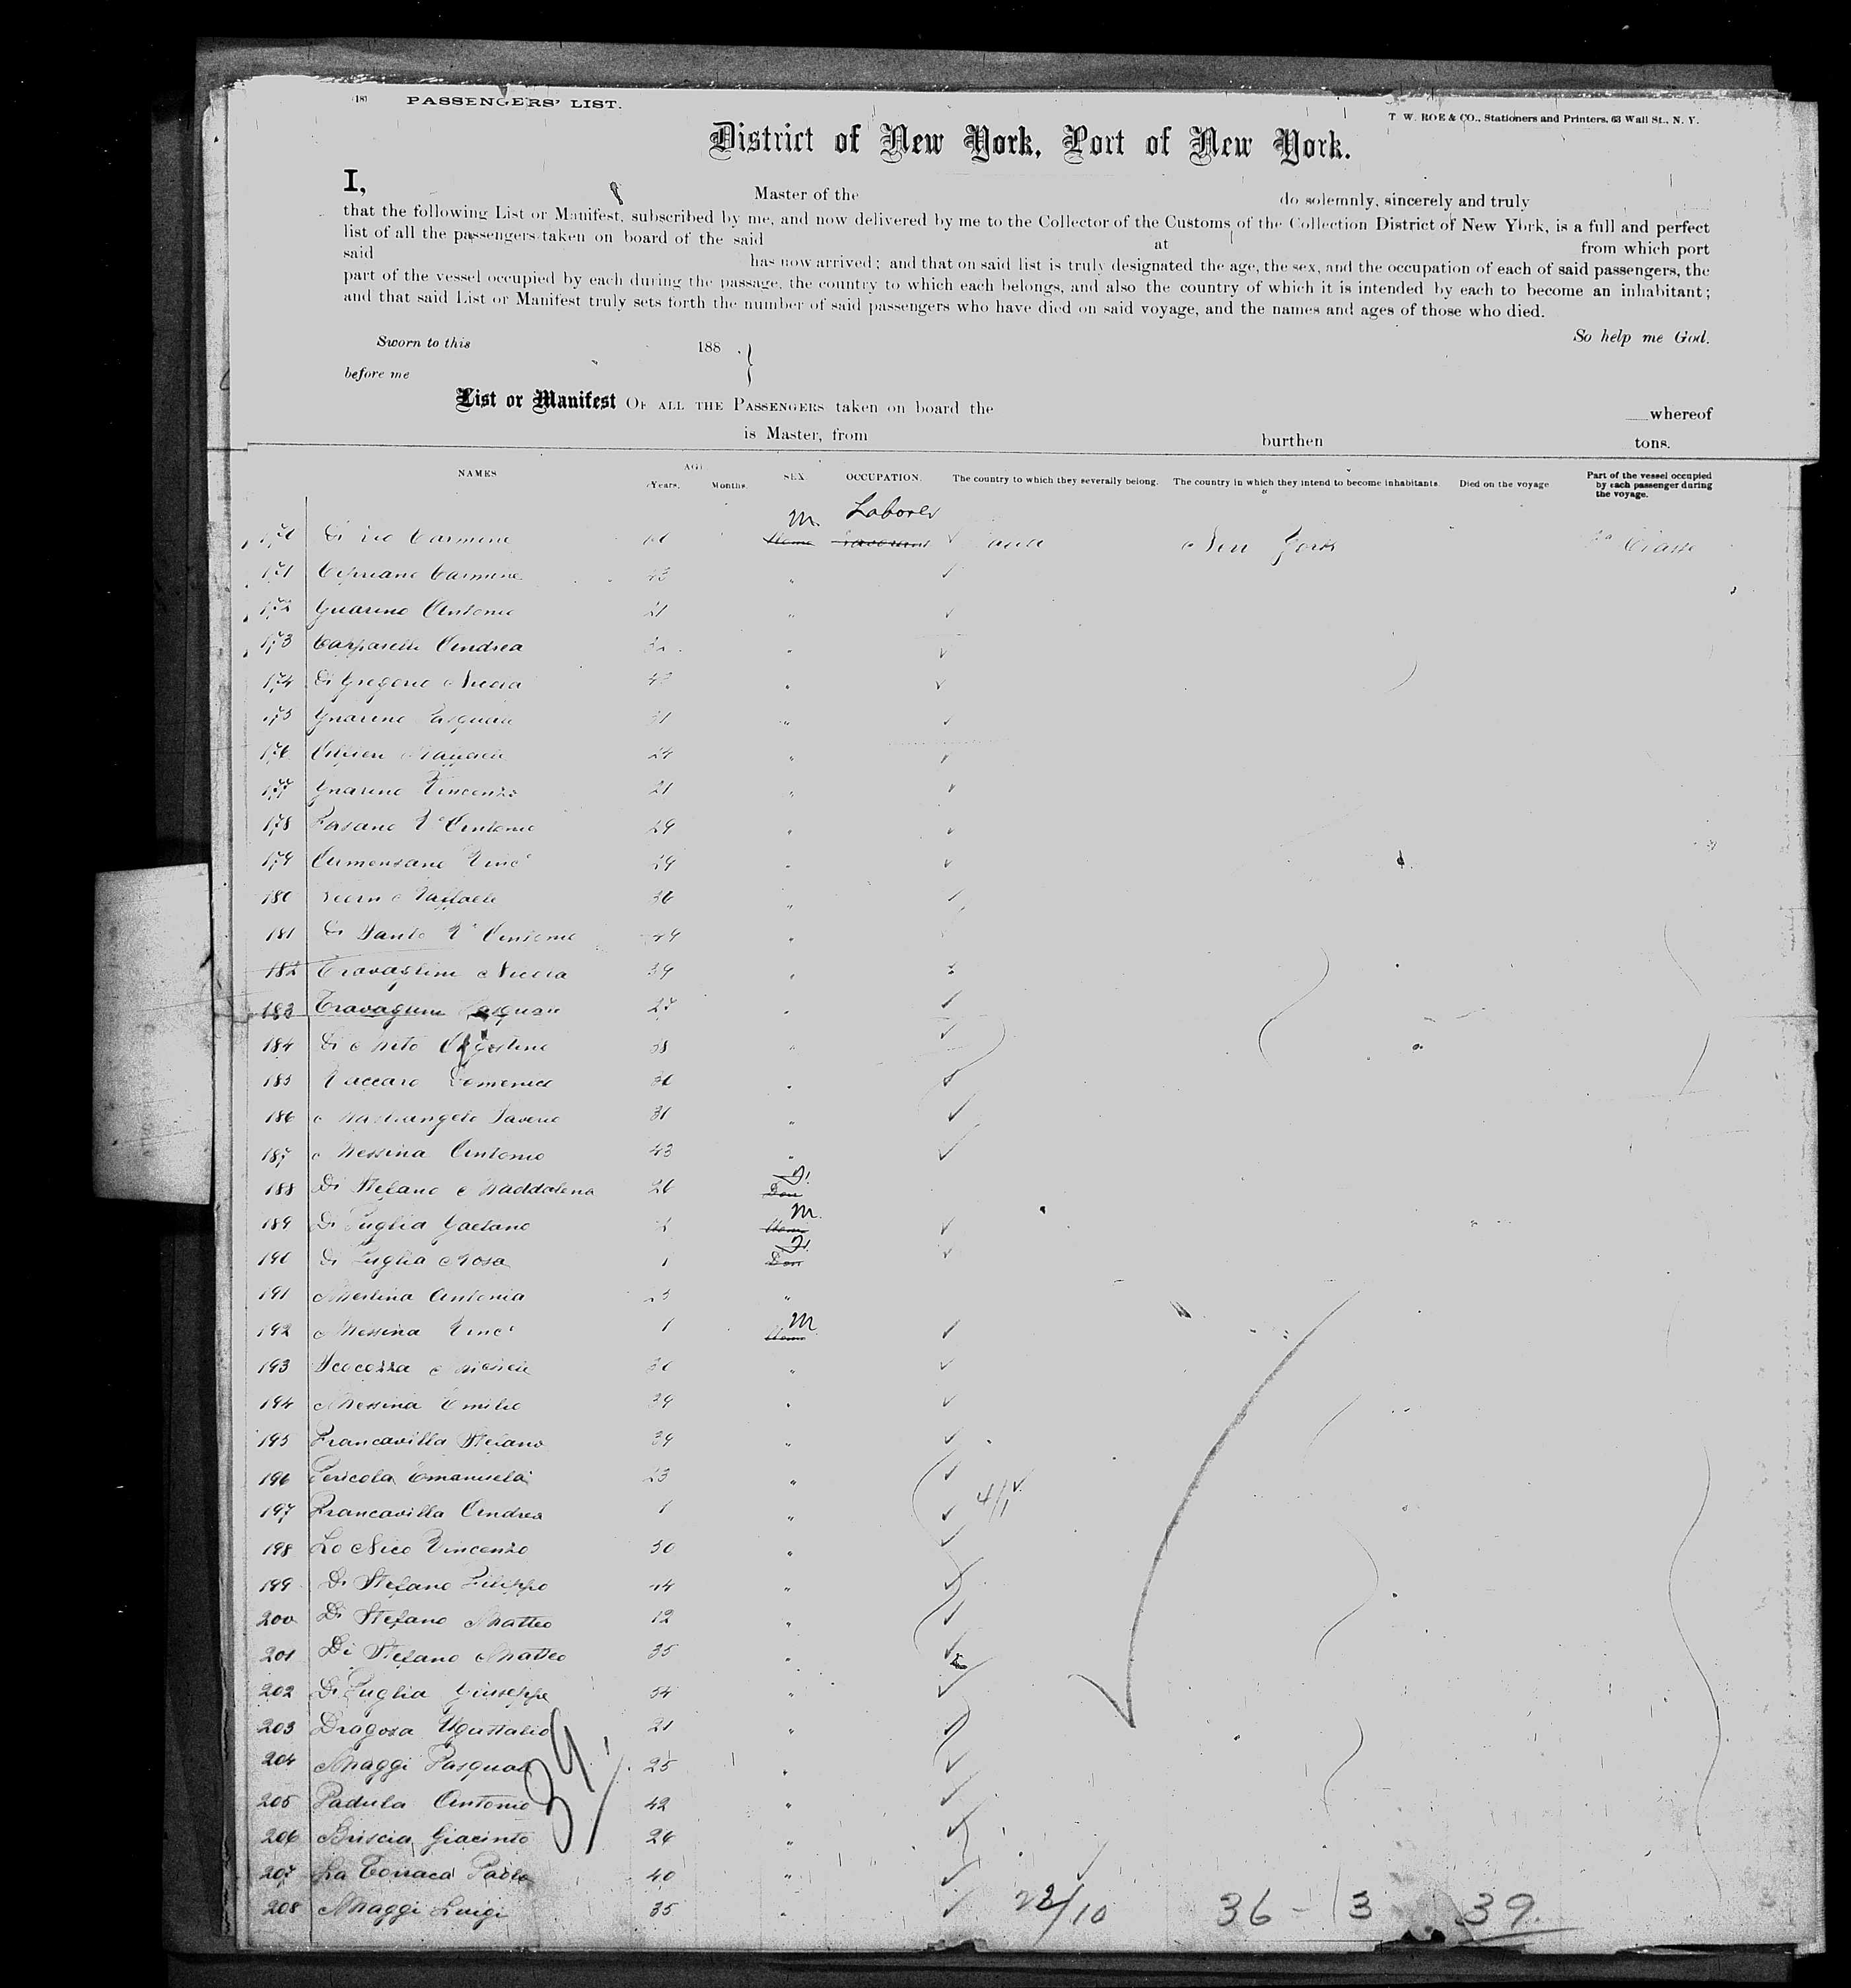 PASSENGERS' LIST.
T. W. ROE & CO., Stationers and Printers, 63 Wall St., N. Y.
District of New York, Port of New York.
I, Master of the do solemnly, sincerely and truly
that the following List or Manifest, subscribed by me, and now delivered by me to the Collector of the Customs of the Collection District of New York, is a full and perfect
list of all the passengers taken on board of the said at from which port
said has now arrived; and that on said list is truly designated the age, the sex, and the occupation of each of said passengers, the
part of the vessel occupied by each during the passage, the country to which each belongs, and also the country of which it is intended by each to become an inhabitant;
and that said List or Manifest truly sets forth the number of said passengers who have died on said voyage, and the names and ages of those who died.
So help me God.
Sworn to this 188
before me
List or Manifest OF ALL THE PASSENGERS taken on board the whereof
is Master, from burthen tons.
NAMES AGE Years. Months. SEX OCCUPATION. The country to which they severally belong. The country in which they intend to become inhabitants. Died on the voyage Part of the vessel occupied by each passenger during the voyage.
M. Laborer
Carmine New York Classe
171 Cipriano Carmine 43 "
172 Guarino Antonio 21 "
173 Andrea "
174 Di Gregorio Nicola "
175 Guarino Pasquale 31 "
176 24 "
177 Guarino Vincenzo 21 "
178 Fasano Antonio 29 "
179 Vinc 29 "
180 Raffaele 36 "
181 Di Santo Antonio "
182 Nicola 39 "
183 Pasquale 27 "
184 Di Agostino "
185 Vaccaro Domenico "
186 Mastrangelo Saverio 31 "
187 Messina Antonio 43 "
188 Di Stefano Maddalena 26 F.
189 Di Puglia Gaetano M.
190 Di Puglia Rosa 1 F.
191 Messina Antonia 23 "
192 Messina Vinc 1 M
193 Scocozza Michele "
194 Messina Emilio 39 "
195 Francavilla Stefano 39 "
196 Pericola Emanuela 23 "
197 Francavilla Andrea 1 "
198 Lo Nico Vincenzo 30 "
199 Di Stefano Filippo 14 "
200 Di Stefano Matteo 12 "
201 Di Stefano Matteo 35 "
202 Di Puglia Giuseppe 34 "
203 Dragosa 21 "
204 Maggi Pasquale 25 "
205 Padula Antonio 42 "
206 Briscia Giacinto 26 "
207 La Torraca Paolo 40 "
208 Maggi Luigi 35 "
39
4/1
22/10 36 - 3 39.